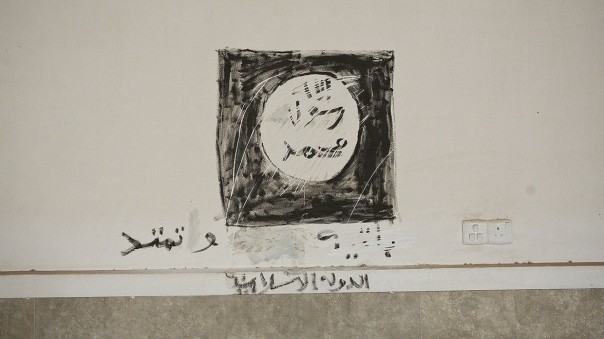 الله
رسول
محمد
باقية وتتمدد
الدولة الاسلامية